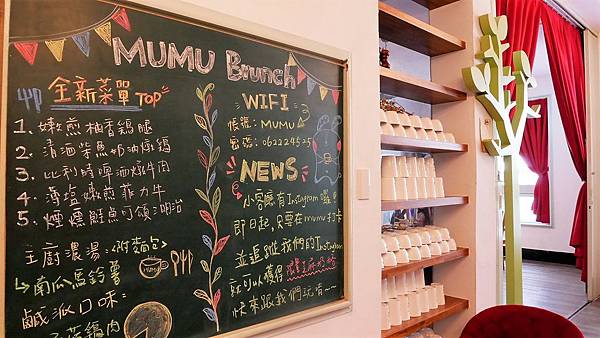 MUMU Brunch
全新菜單TOP
1. 嫩煎柚香雞腿
2. 清酒柴魚奶油燉雞
3. 比利時啤酒燉牛肉
4. 薄鹽嫩煎菲力牛
5. 煙燻鮭魚可頌三明治
主廚濃湯:<附麵包>
↳南瓜馬鈴薯
鹹派口味:
菠雞肉
MUMU
WIFI
帳號:MUMU
密碼:062224525
NEWS
小客廳有Instagram囉!
即日起,只要在mumu打卡
並追蹤我們的Instagram
就可以獲得
快來跟我們玩有~~